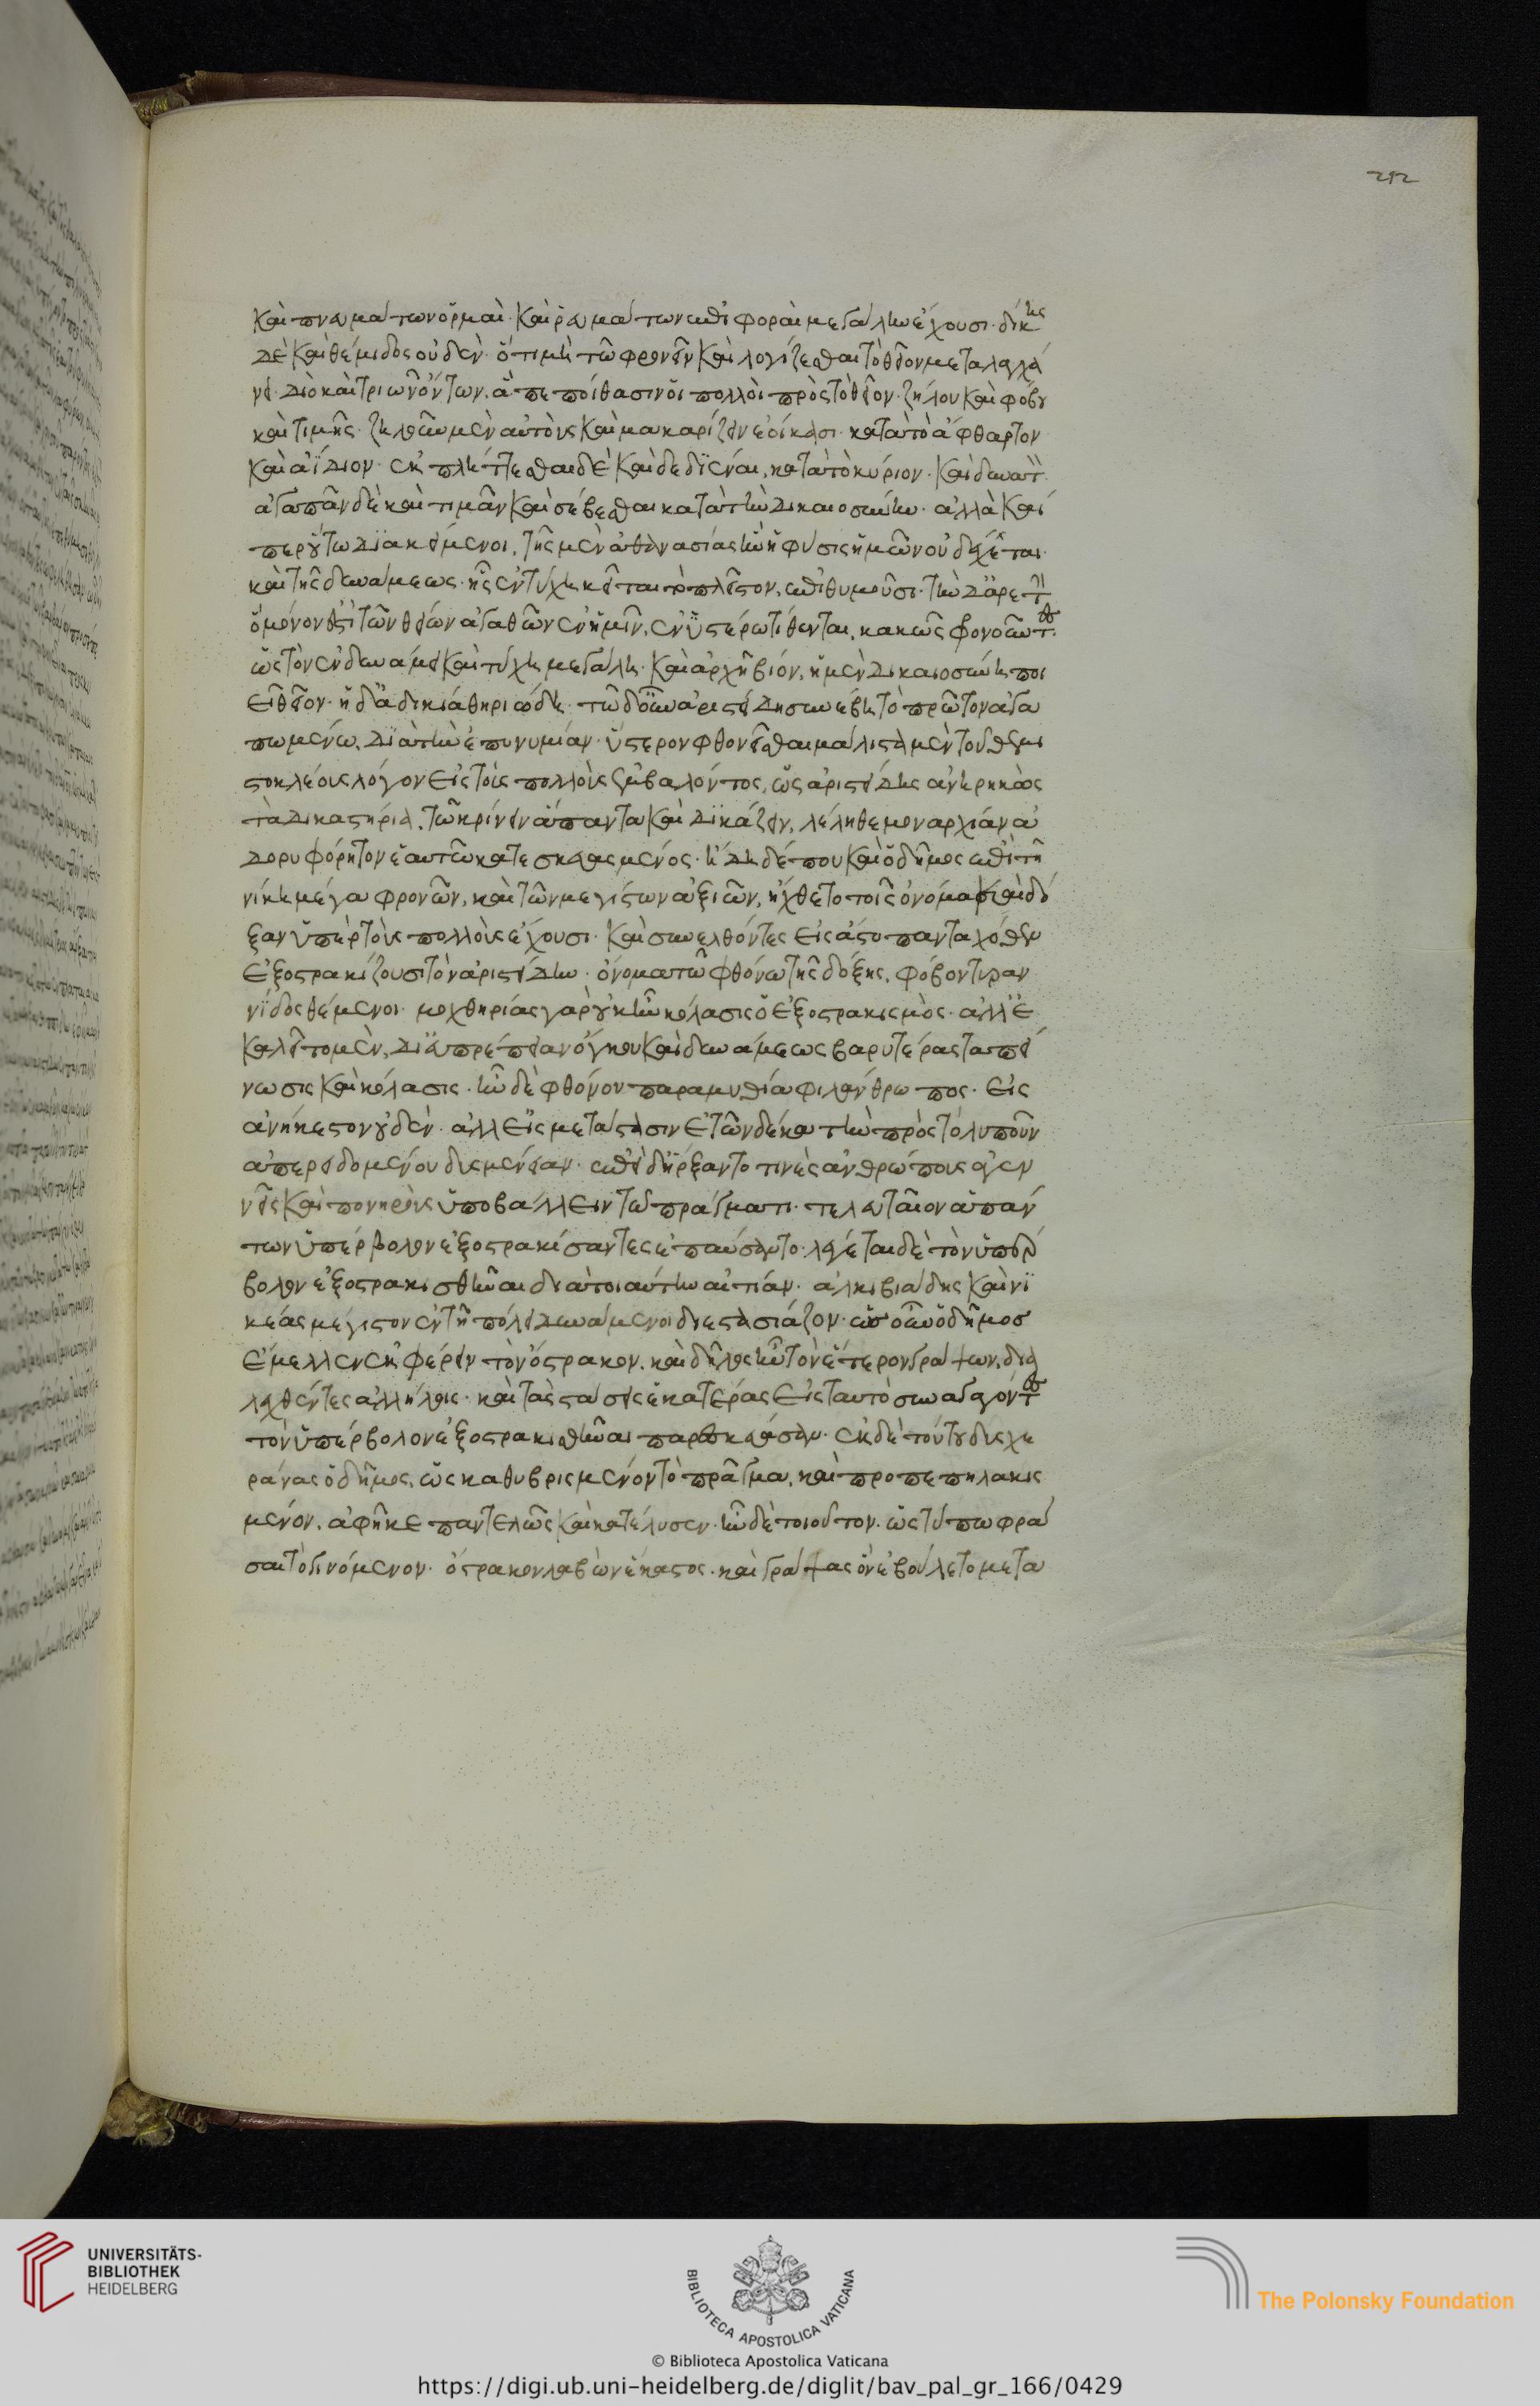 292
καὶ πνευμάτων ὁρμαὶ· καὶ ῥευμάτων ἐπιφοραὶ μεγάλην ἔχουσι· δίκης
δὲ καὶ θέμιδος οὐδὲν· ὅτι μὴ τῷ φρονεῖν καὶ λογίζεσθαι τὸ θεῖον μεταλαγχά
νει· διὸ καὶ τριῶν ὄντων, ἃ πεπόνθασιν οἱ πολλοὶ πρὸς τὸ θεῖον· ζήλου καὶ φόβου
καὶ τιμῆς· ζηλοῦν μὲν αὐτοὺς καὶ μακαρίζειν ἐοίκασι· κατὰ τὸ ἄφθαρτον
καὶ ἀΐδιον· ἐκπλήττεσθαι δὲ καὶ δεδιέναι, κατὰ τὸ κύριον· καὶ δυνατ
ἀγαπᾶν δὲ καὶ τιμᾶν καὶ σέβεσθαι κατὰ τὴν δικαιοσύνην· ἀλλὰ καί
περ οὕτω διακείμενοι, τῆς μὲν ἀθανασίας ἣν ἡ φύσις ἡμῶν οὐ δέχεται·
καὶ τῆς δυνάμεως· ἧς ἐν τύχῃ κεῖται τὸ πλεῖστον, ἐπιθυμοῦσι· τὴν δ' ἀρετ
ὃ μόνον ἐστὶ τῶν θείων ἀγαθῶν ἐν ἡμῖν, ἐν ὑστέρῳ τίθενται, κακῶς φρονοῦντ
ὡς τὸν ἐν δυνάμει καὶ τύχῃ μεγάλῃ· καὶ ἀρχῇ βίον, ἡ μὲν δικαιοσύνη ποι
εῖ θεῖον· ἡ δ' ἀδικία θηριώδη· τῷ δ' οὖν ἀριστείδῃ συνέβη τὸ πρῶτον ἀγα
πωμένῳ, διὰ τὴν ἐπωνυμίαν· ὕστερον φθονεῖσθαι μάλιστα μὲν τοῦ θεμι
στοκλέους λόγον εἰς τοὺς πολλοὺς ἐμβαλόντος, ὡς ἀριστείδης ἀνῃρηκὼς
τὰ δικαστήρια, τῷ κρίνειν ἅπαντα καὶ δικάζειν, λέληθε μοναρχίαν ἀ
δορυφόρητον ἑαυτῷ κατεσκευασμένος· ἤδη δέ που καὶ ὁ δῆμος ἐπὶ τῇ
νίκῃ μέγα φρονῶν, καὶ τῶν μεγίστων ἀξιῶν, ἤχθετο τοῖς ὀνόμα καὶ δό
ξαν ὑπὲρ τοὺς πολλοὺς ἔχουσι· καὶ συνελθόντες εἰς ἄστυ πανταχόθεν
ἐξοστρακίζουσι τὸν ἀριστείδην· ὄνομα τῷ φθόνῳ τῆς δόξης, φόβον τυραν
νίδος θέμενοι· μοχθηρίας γὰρ οὐκ ἦν κόλασις ὁ ἐξοστρακισμὸς· ἀλλ' ἐ
καλεῖτο μὲν, δι' εὐπρέπειαν ὄγκου καὶ δυνάμεως βαρυτέρας ταπεί
νωσις καὶ κόλασις· ἦν δὲ φθόνου παραμυθία φιλάνθρωπος· εἰς
ἀνήκεστον οὐδὲν· ἀλλ' εἰς μετάστασιν ἐτῶν δέκα τὴν πρὸς τὸ λυποῦν
ἀπερειδομένου δυσμένειαν· ἐπεὶ δ' ἤρξαντο τινὲς ἀνθρώπους ἀγεν
νεῖς καὶ πονηροὺς ὑποβάλλειν τῷ πράγματι· τελευταῖον ἁπάν
των ὑπέρβολον ἐξοστρακίσαντες ἐπαύσαντο· λέγεται δὲ τὸν ὑπέρ
βολον ἐξοστρακισθῆναι διὰ τοιαύτην αἰτίαν· ἀλκιβιάδης καὶ νι
κίας μέγιστον ἐν τῇ πόλει δυνάμενοι διεστασίαζον· ὡς οὖν ὁ δῆμος
ἔμελλεν ἐκφέρειν τὸν ὄστρακον, καὶ δῆλος ἦν τὸν ἕτερον γράψων, δια
λεχθέντες ἀλλήλοις· καὶ τὰς στάσεις ἑκατέρας εἰς ταυτὸ συναγαγόντ
τὸν ὑπέρβολον ἐξοστρακισθῆναι παρεσκεύασαν· ἐκ δὲ τούτου δυσχε
ράνας ὁ δῆμος, ὡς καθυβρισμένον τὸ πρᾶγμα, καὶ προπεπηλακισ
μένον, ἀφῆκε παντελῶς καὶ κατέλυσεν· ἦν δὲ τοιοῦτον· ὡς τύπῳ φρά
σαι τὸ γινόμενον· ὄστρακον λαβὼν ἕκαστος· καὶ γράψας ὃν ἐβούλετο μετα
UNIVERSITÄTS-
BIBLIOTHEK
HEIDELBERG
BIBLIOTECA APOSTOLICA VATICANA
The Polonsky Foundation
© Biblioteca Apostolica Vaticana
https://digi.ub.uni-heidelberg.de/diglit/bav_pal_gr_166/0429